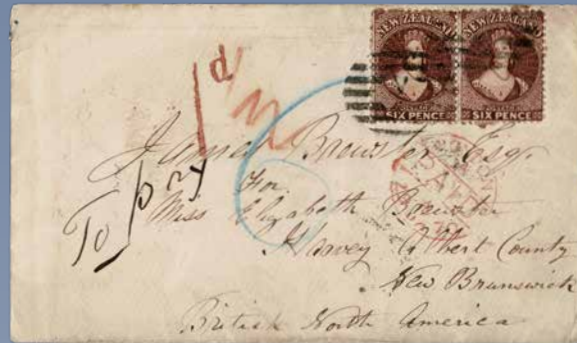 NEW ZEALAND NEW ZEALAND
SIX PENCE SIX PENCE
1d
James Brewster Esq.
For
Miss Elizabeth Brewster
Harvey Albert County
New Brunswick
British North America
To pay